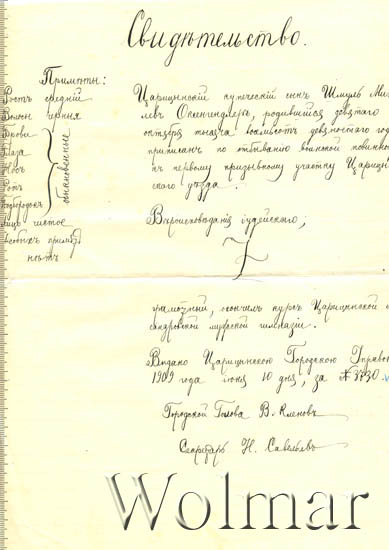 Свидѣтельство.
Примѣты:
Ростъ средній
Волосы черныя
Брови
Глаза
Носъ
Ротъ
Подбородокъ
обыкновенные
лицо чистое
особыхъ примѣт
нѣтъ
Царицынскій купеческій сынъ Шмуль Ми
левъ Оксенгендлеръ, родившійся девятаго
октября тысяча восемьсотъ девяностаго го
приписанъ по отбыванію воинской повинно
къ первому призывному участку Царицы
скаго уѣзда.
Вѣроисповѣданія іудейскаго,
грамотный, окончилъ курсъ Царицынской
сандровской мужской гимназіи.
Выдано Царицынскою Городскою Управою
1909 года іюня 10 дня, за № 3730.
Городской Голова В. Кленовъ
Секретарь Н. Савельевъ
Wolmar